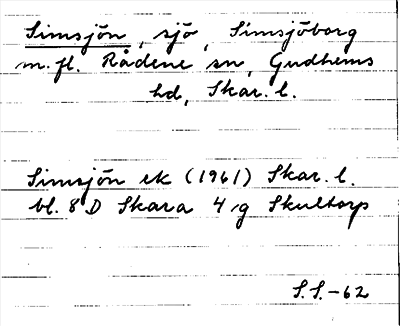 Simsjön, sjö, Simsjöborg
m. fl. Rådene sn, Gudhems
hd, Skar. l.
Simsjön ek (1961) Skar. l.
bl. 8 D Skara 4 g Skultorp
S.S.-62